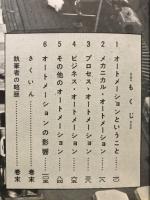 もくじ
1 オートメーションということ
2 メカニカル・オートメーション
3 プロセス・オートメーション
4 ビジネス・オートメーション
5 その他のオートメーション
6 オートメーションの影響
さくいん 巻末
執筆者の略歴 巻末